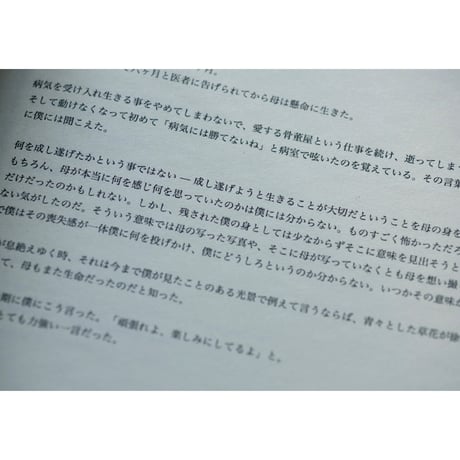 六ヶ月と医者に告げられてから母は懸命に生きた。
病気を受け入れ生きる事をやめてしまわないで、愛する骨董屋という仕事を続け、逝ってしまっ
そして動けなくなって初めて「病気には勝てないね」と病室で呟いたのを覚えている。その言葉
に僕には聞こえた。
何を成し遂げたかという事ではない ― 成し遂げようと生きることが大切だということを母の身を
もちろん、母が本当に何を感じ何を思っていたのかは僕には分からない。ものすごく怖かっただろ
だけだったのかもしれない。しかし、残された僕の身としては少なからずそこに意味を見出そうと
ない気がしたのだ。そういう意味では母の写った写真や、そこに母が写っていなくとも母を想い撮
で僕はその喪失感が一体僕に何を投げかけ、僕にどうしろというのか分からない。いつかその意味が
が息絶えゆく時、それは今まで僕が見たことのある光景で例えて言うならば、青々とした草花が
て、母もまた生命だったのだと知った。
期に僕にこう言った。「頑張れよ、楽しみにしてるよ」と。
とても力強い一言だった。